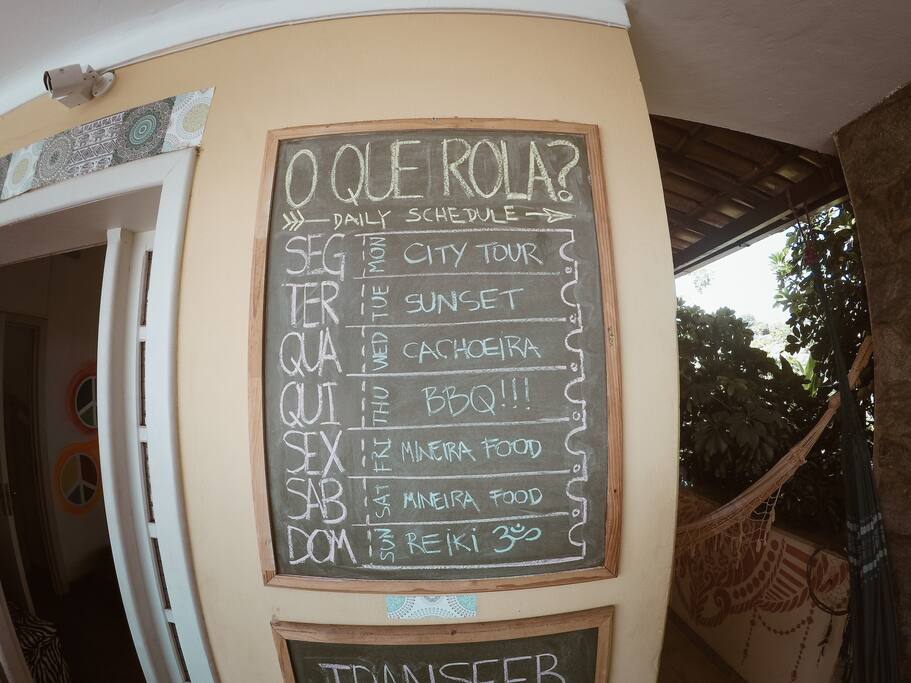 O QUE ROLA?
DAILY SCHEDULE
SEG MON CITY TOUR
TER TUE SUNSET
QUA WED CACHOEIRA
QUI THU BBQ!!!
SEX FRI MINEIRA FOOD
SAB SAT MINEIRA FOOD
DOM SUN REIKI ॐ
TRANSFER